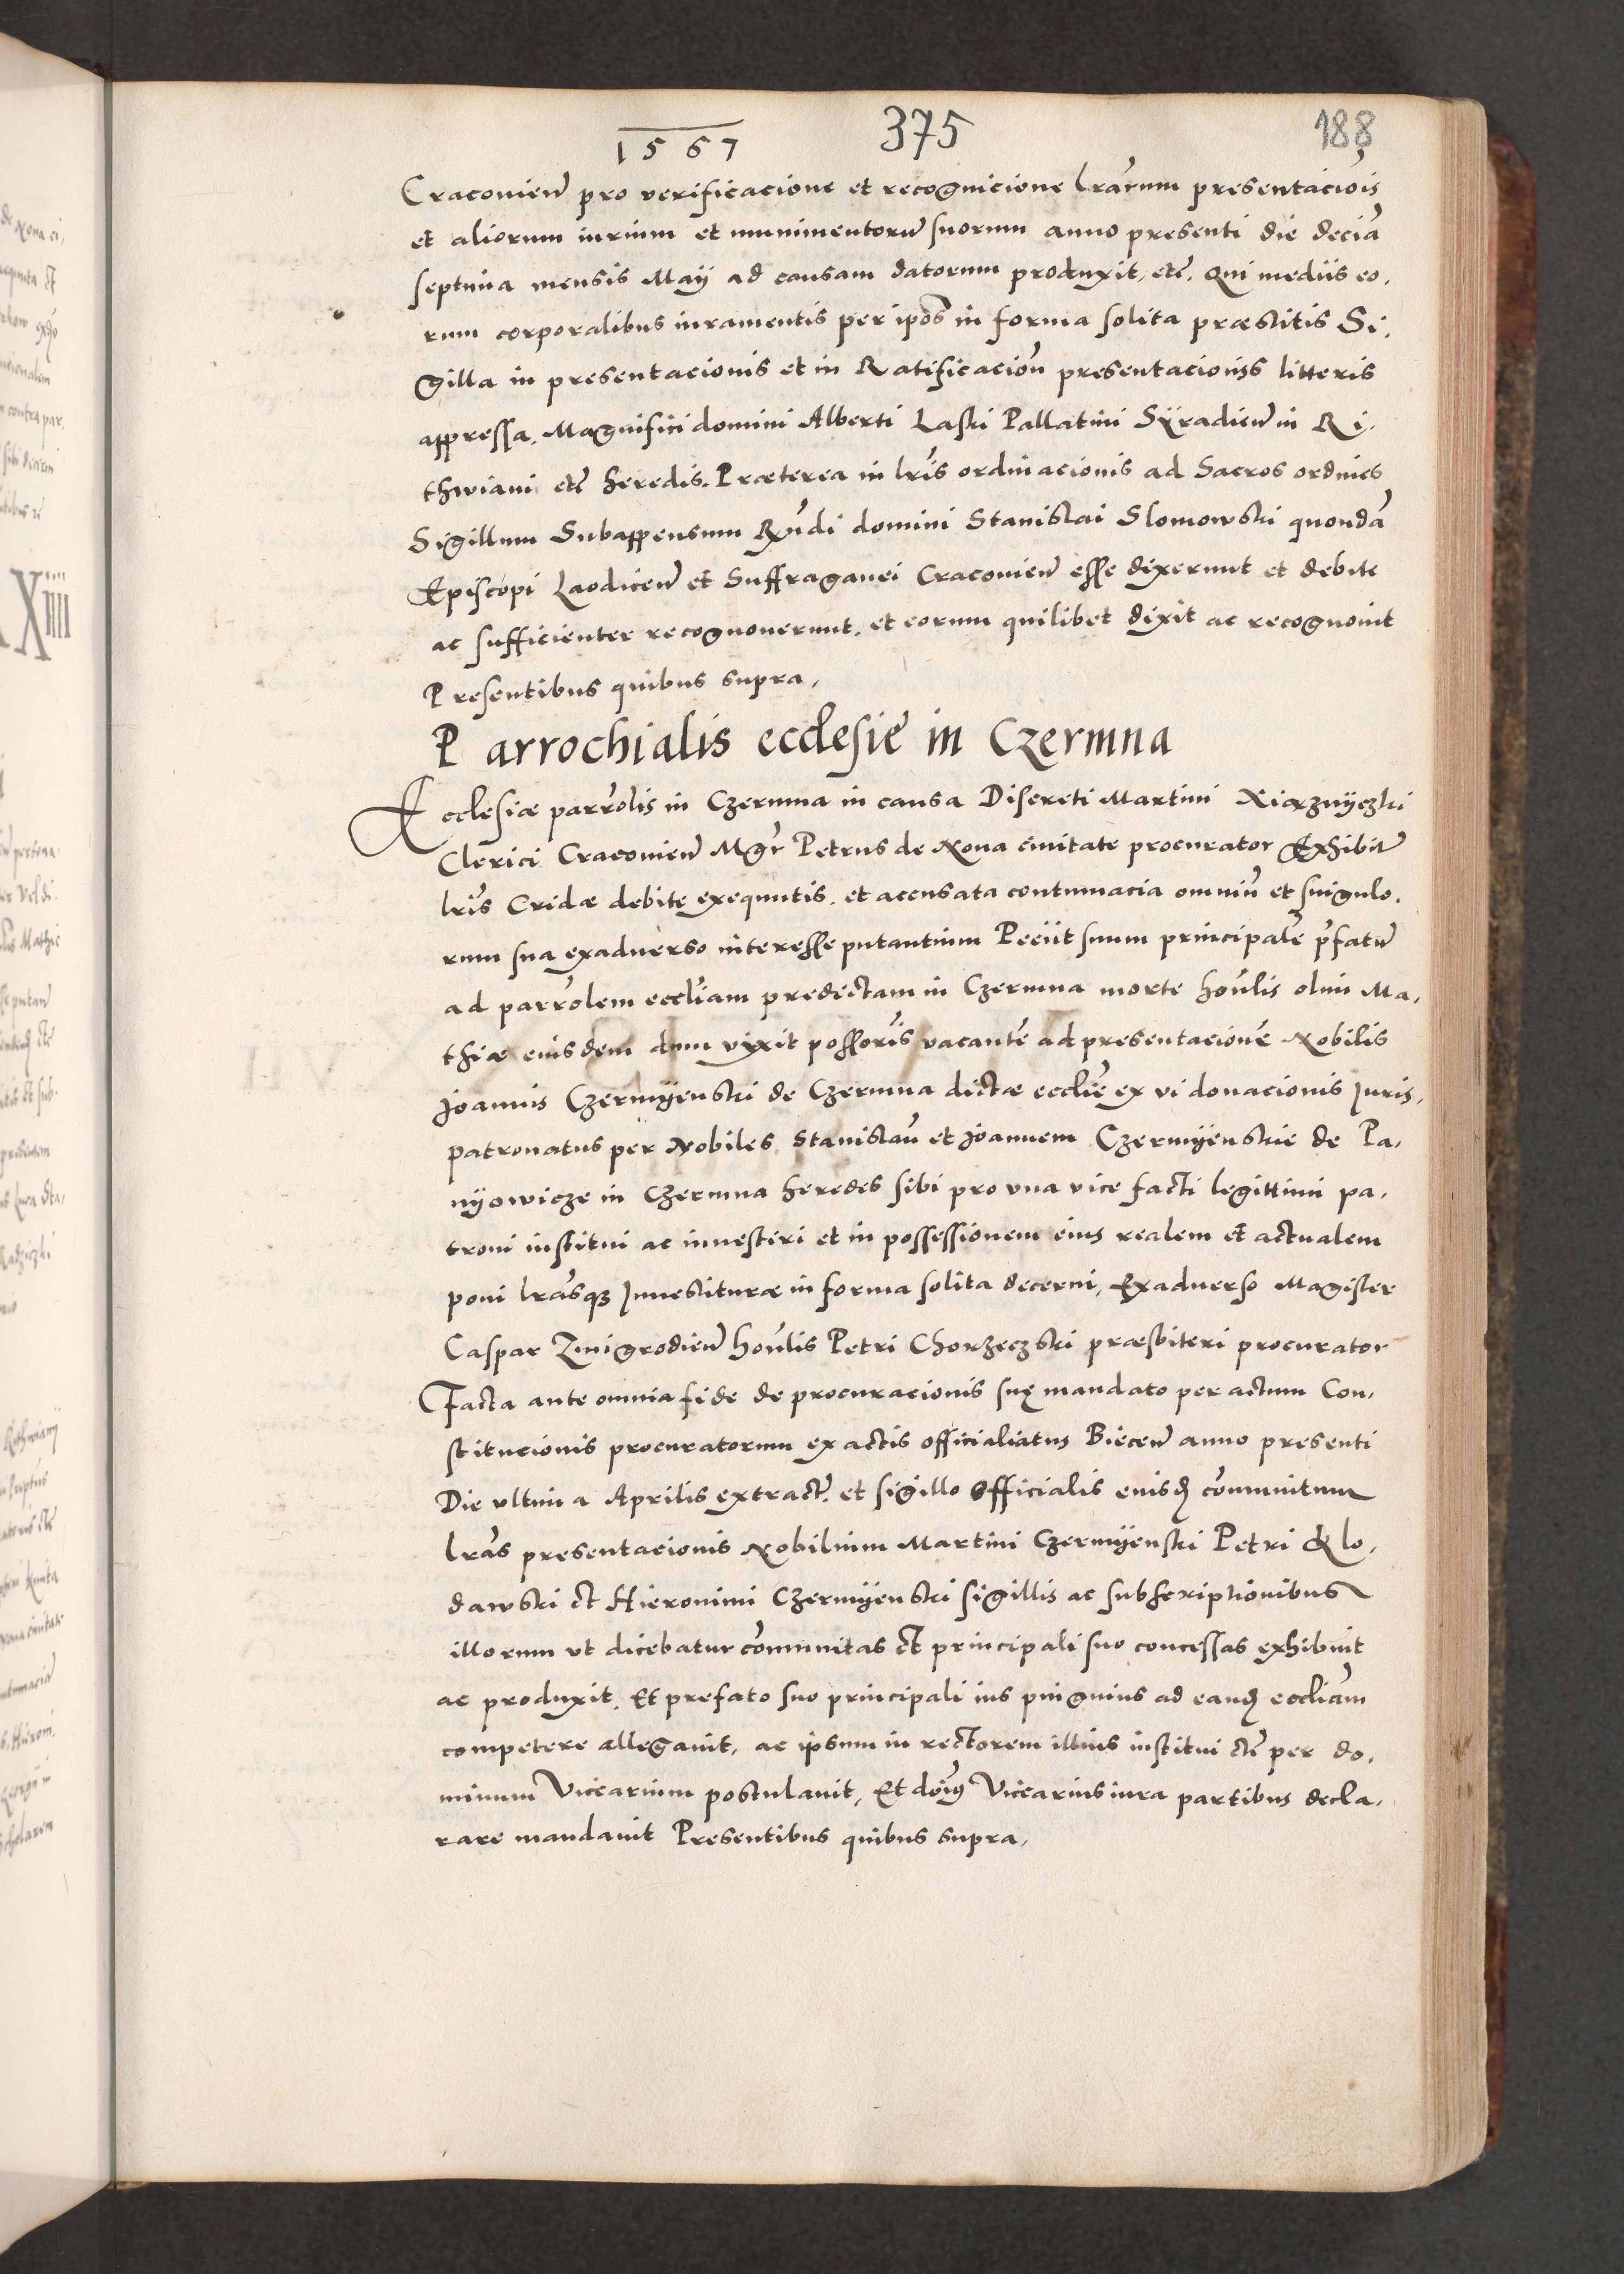 1567 375 188
Craconien̄ pro verificacione et recognicione l̄rarum presentaciōis
et aliorum iurium et munimentorū suorum anno presenti die deciā
septima mensis Maÿ ad causam datorum produxit, etc̄. Qui mediis eo,
rum corporalibus iuramentis per ip̄os in forma solita præstitis Si,
gilla in presentacionis et in Ratificaciōn presentacioniss litteris
appressa, Magnifici domini Alberti Laski Pallatini Sÿradien̄ in Ri,
thwiani etc̄ heredis. Præterea in l̄ris ordinacionis ad Sacros ordines
Sigillum Subappensum Rn̄di domini Stanislai Slomowski quondā
Episcopi Laodicen̄ et Suffraganei Craconien̄ esse dixerunt et debite
ac sufficienter recognouerunt, et eorum quilibet dixit ac recognouit
Presentibus quibus supra,
Parrochialis ecclesie in Czermna
Ecclesiæ parr̄olis in Czermna in causa Discreti Martini Xiærznÿczki
Clerici Craconien̄ Mgr̄ Petrus de Noua ciuitate procurator Exhibit̄
l̄ris Cridæ debite exequutis, et accusata contumacia omniū et singulo,
rum sua exaduerso interesse putantium Peciit suum principalē p̄fatū
ad parr̄olem eccl̄iam predictam in Czermna morte hon̄lis olim Ma,
thiæ eiusdem dum vixit possor̄is vacantē ad presentacionē Nobilis
Joannis Czermÿenski de Czermna dictæ eccl̄ie ex vi donacionis Juris,
patronatus per Nobiles Stanislaū et Joannem Czermÿenskie de Pa,
nÿowicze in Czermna heredes sibi pro vna vice facti legittimi pa,
troni institui ac inuestiri et in possessionem eius realem et actualem
poni l̄rasq3 Inuestituræ in forma solita decerni, Exaduerso Magister
Caspar Zmigrodien̄ hon̄lis Petri Chorzeczski præsbiteri procurator
Facta ante omnia fide de procuracionis suę mandato per actum Con,
stitucionis procuratorum ex actis officialiatus Biecen̄ anno presenti
Die vltima Aprilis extract̄, et sigillo Officialis eiusd̄ com̄unitum
l̄ras presentacionis Nobilium Martini Czermÿenski Petri & lo,
dawski et Hieronimi Czermÿenski sigillis ac subscriptionibus
illorum vt dicebatur com̄unitas et principali suo concessas exhibuit
ac produxit, Et prefato suo principali ius pinguius ad eand̄ eccl̄iam
competere allegauit, ac ipsum in rectorem illius institui etc̄ per do,
minum Vicearium postulauit, Et dōin9 Vicearius iura partibus decla,
rare mandauit Presentibus quibus supra,